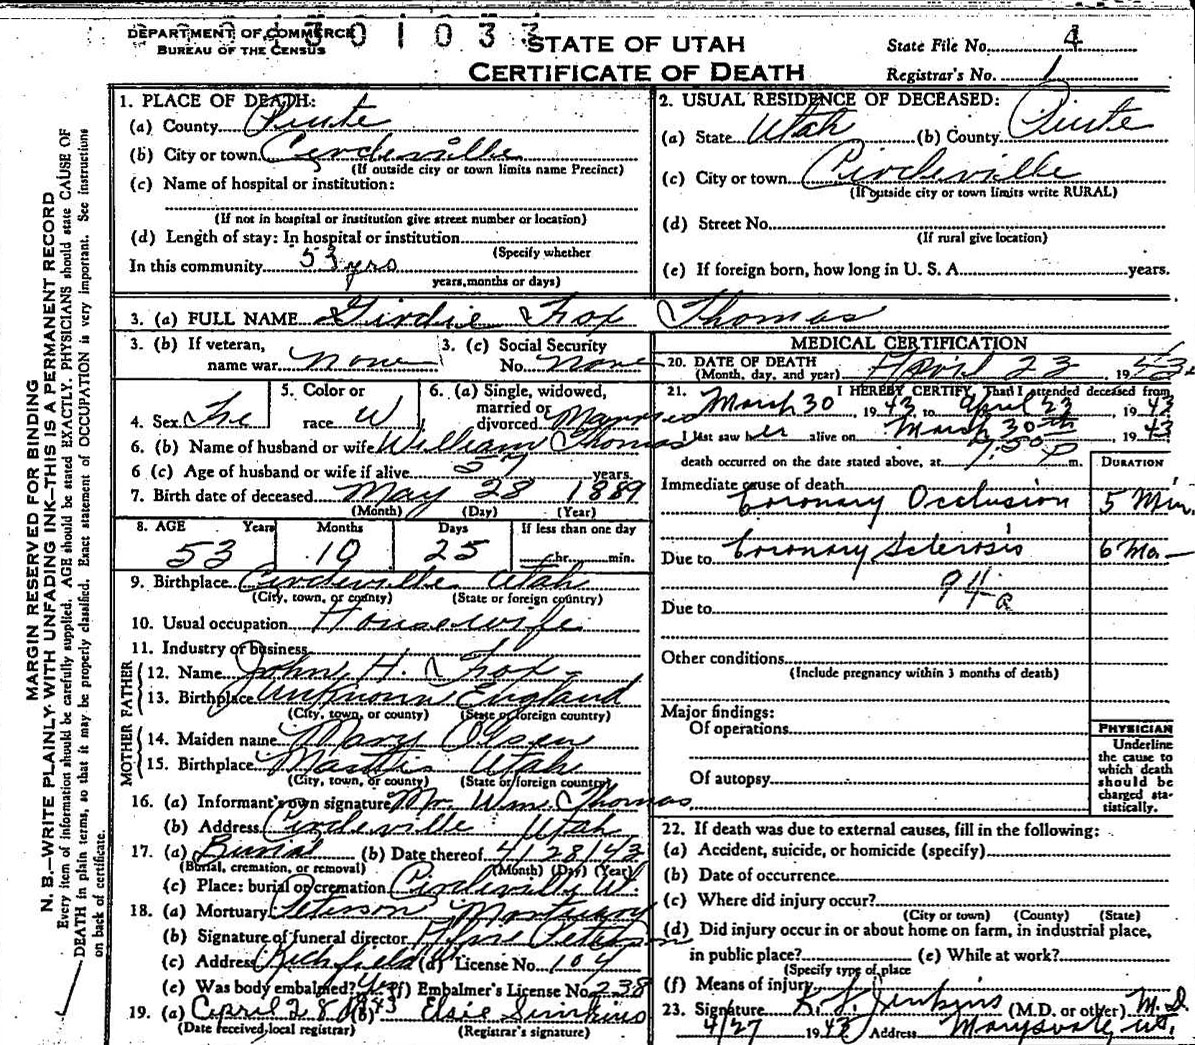 MARGIN RESERVED FOR BINDING
N. B.—WRITE PLAINLY WITH UNFADING INK—THIS IS A PERMANENT RECORD
Every item of information should be carefully supplied. AGE should be stated EXACTLY. PHYSICIANS should state CAUSE OF
DEATH in plain terms, so that it may be properly classified. Exact statement of OCCUPATION is very important. See instructions
on back of certificate.
DEPARTMENT OF COMMERCE
BUREAU OF THE CENSUS
3 0 1 0 3 3
STATE OF UTAH
CERTIFICATE OF DEATH
State File No. 4
Registrar's No. 1
1. PLACE OF DEATH:
(a) County Piute
(b) City or town Circleville
(If outside city or town limits name Precinct)
(c) Name of hospital or institution:
(If not in hospital or institution give street number or location)
(d) Length of stay: In hospital or institution
(Specify whether
In this community 53 yrs
years, months or days)
2. USUAL RESIDENCE OF DECEASED:
(a) State Utah (b) County Piute
(c) City or town Circleville
(If outside city or town limits write RURAL)
(d) Street No.
(If rural give location)
(e) If foreign born, how long in U. S. A. years.
3. (a) FULL NAME Girdie Fox Thomas
3. (b) If veteran,
name war none
3. (c) Social Security
No. none
4. Sex Fe
5. Color or
race W
6. (a) Single, widowed,
married or
divorced Married
6. (b) Name of husband or wife William Thomas
6 (c) Age of husband or wife if alive 57 years.
7. Birth date of deceased May 28 1889
(Month) (Day) (Year)
8. AGE Years Months Days If less than one day
53 10 25 hr. min.
9. Birthplace Circleville Utah
(City, town, or county) (State or foreign country)
10. Usual occupation Housewife
11. Industry or business
FATHER
12. Name John H. Fox
13. Birthplace Unknown England
(City, town, or county) (State or foreign country)
MOTHER
14. Maiden name Mary Olsen
15. Birthplace Utah
(City, town, or county) (State or foreign country)
16. (a) Informant's own signature Mr. Wm. Thomas
(b) Address Circleville Utah
17. (a) Burial (b) Date thereof 4/28/43
(Burial, cremation, or removal) (Month) (Day) (Year)
(c) Place: burial or cremation Circleville Ut.
18. (a) Mortuary Peterson Mortuary
(b) Signature of funeral director Peterson
(c) Address Richfield (d) License No. 104
(e) Was body embalmed? yes (f) Embalmer's License No. 238
19. (a) April 28 1943 (b) Elsie Simkins
(Date received local registrar) (Registrar's signature)
MEDICAL CERTIFICATION
20. DATE OF DEATH
(Month, day, and year) April 23, 19
21. I HEREBY CERTIFY, That I attended deceased from
March 30, 1943 to April 23, 1943
I last saw her alive on March 30th, 1943
death occurred on the date stated above, at 7:50 P m.
DURATION
Immediate cause of death
Coronary Occlusion 5 Min.
Due to Coronary Sclerosis 6 Mo—
94a
Due to
Other conditions
(Include pregnancy within 3 months of death)
Major findings:
Of operations
Of autopsy
PHYSICIAN
Underline
the cause to
which death
should be
charged sta-
tistically.
22. If death was due to external causes, fill in the following:
(a) Accident, suicide, or homicide (specify)
(b) Date of occurrence
(c) Where did injury occur?
(City or town) (County) (State)
(d) Did injury occur in or about home on farm, in industrial place,
in public place? (e) While at work?
(Specify type of place
(f) Means of injury
23. Signature Jenkins (M.D. or other) M.D.
4/27 1943 Address Marysvale, Ut.